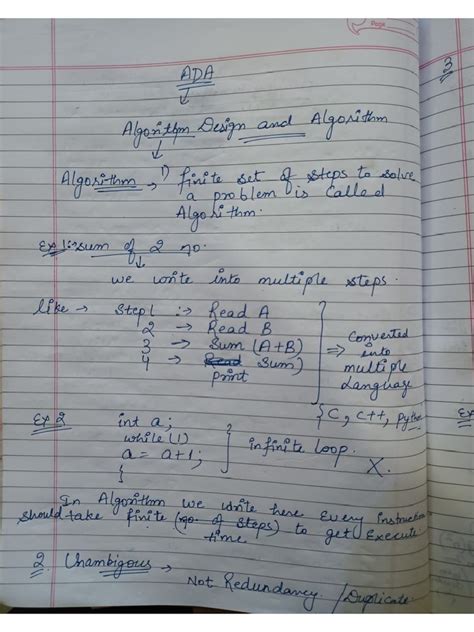 Page
3
ADA
Algorithm Design and Algorithm
Algorithm → 1) finite set of steps to solve
a problem is called
Algorithm.
Ex 1:- sum of 2 no.
we write into multiple steps.
like → Step 1 :→ Read A
2 → Read B
3 → Sum (A+B)
4 → Read Sum)
print
⇒ Converted
into
multiple
Language
{C, C++, python
Ex 2 int a;
while (1)
a = a+1;
{
} infinite loop.
X.
In Algorithm we write here Every instruction
should take finite (no. of steps) to get Execute.
time
2. Unambigous →
Not Redundancy. /Duplicate.